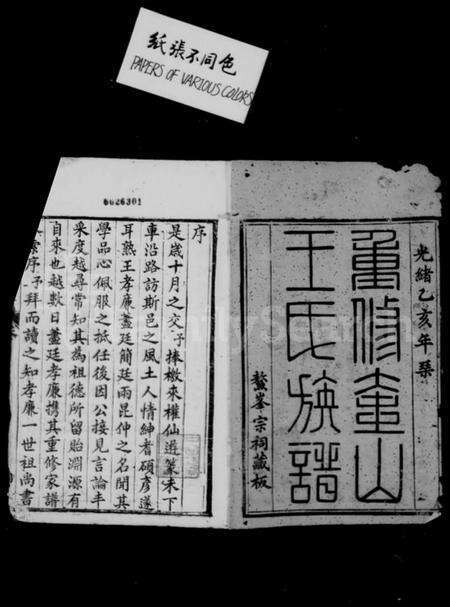 紙張不同色
PAPERS OF VARIOUS COLORS
6626301
光緒乙亥年葺
重修壺山
王氏族譜
鰲峯宗祠藏板
序
是歲十月之交予捧檄來權仙遊篆未下
車沿路訪斯邑之風土人情紳耆碩彥遂
耳熟王孝廉藎廷簡廷雨昆仲之名聞其
學品心佩服之抵任後因公接見言論丰
采度越尋常知其為祖德所留貽淵源有
自來也越數日藎廷孝廉携其重修家譜
索序予拜而讀之知孝廉一世祖尚書